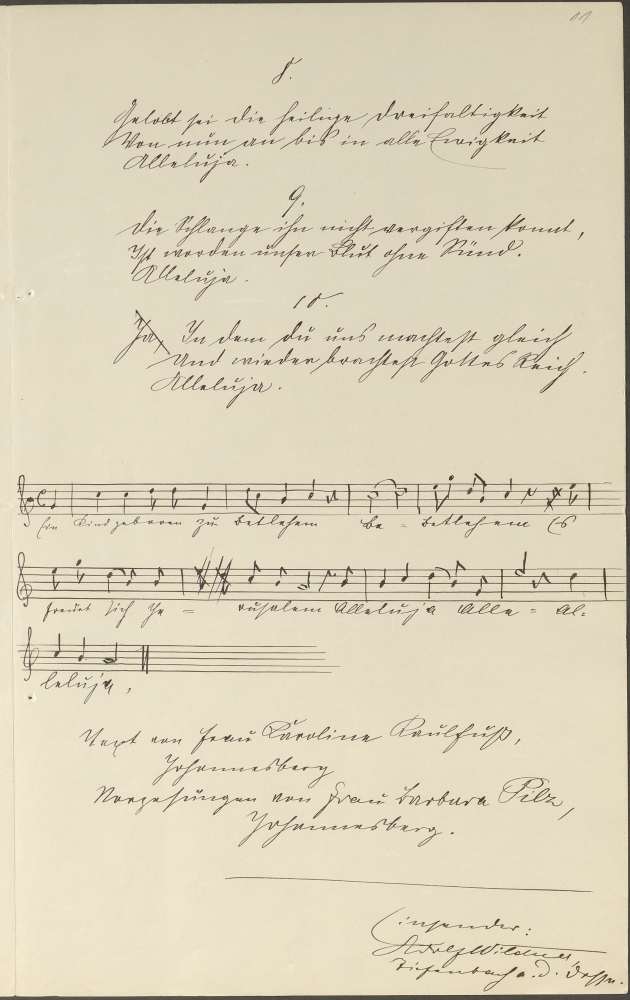 11
8.
Gelobt sei die heilige Dreifaltigkeit
Von nun an bis in alle Ewigkeit
Alleluja.
9.
Die Schlange ihn nicht vergiften konnt,
Ist worden unser Blut ohne Sünd.
Alleluja.
10.
Ja, In dem du uns machtest gleich
Und wieder brachtest Gottes Reich.
Alleluja.
Ein Kind geboren zu Betlehem Be - Betlehem Es
freuet sich Je - rusalem Alleluja Alle - Al-
leluja,
Text von Frau Karoline Kaulfuß,
Johannesberg
Vorgesungen von Frau Barbara Pilz,
Johannesberg.
Einsender:
Adolf Wildner
Tiefenbach a. d. Desse.